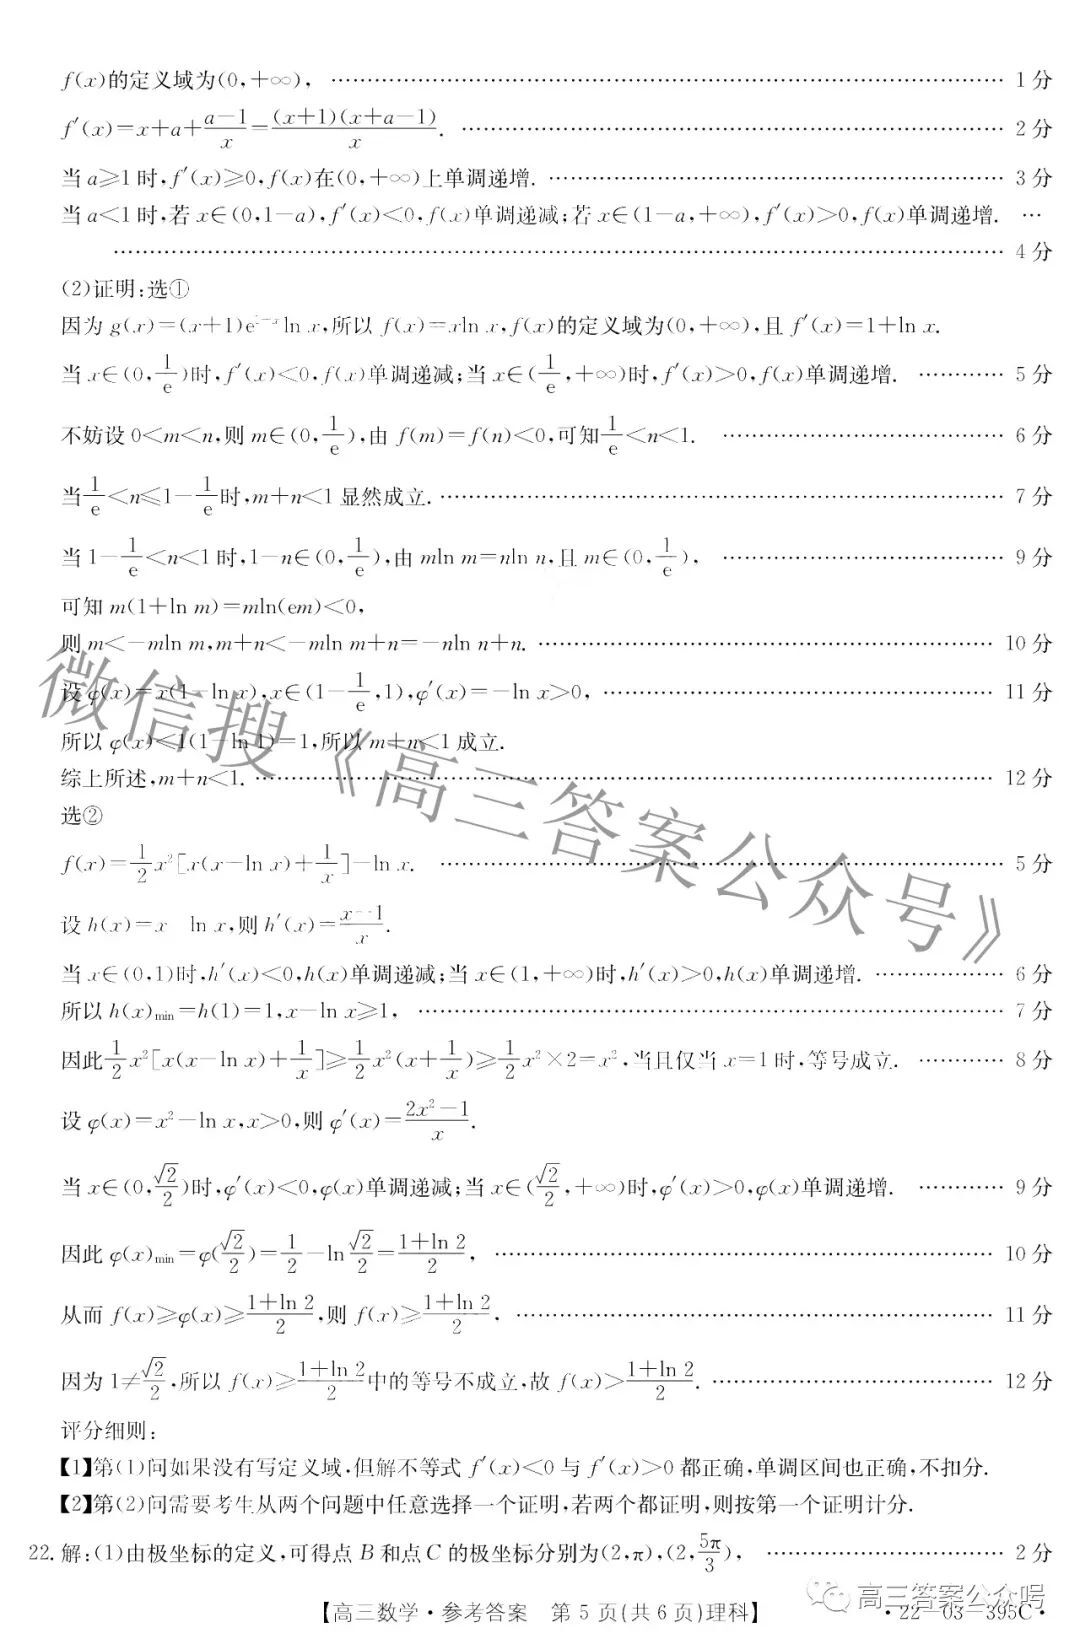 f(x)的定义域为(0,+∞), …… 1分
f′(x)=x+a+\frac{a-1}{x}=\frac{(x+1)(x+a-1)}{x}. …… 2分
当a≥1时,f′(x)≥0,f(x)在(0,+∞)上单调递增. …… 3分
当a<1时,若x∈(0,1-a),f′(x)<0,f(x)单调递减;若x∈(1-a,+∞),f′(x)>0,f(x)单调递增. …
…… 4分
(2)证明:选①
因为g(x)=(x+1)e ln x,所以f(x)=xln x,f(x)的定义域为(0,+∞),且f′(x)=1+ln x.
当x∈(0,\frac{1}{e})时,f′(x)<0,f(x)单调递减;当x∈(\frac{1}{e},+∞)时,f′(x)>0,f(x)单调递增. …… 5分
不妨设0<m<n,则m∈(0,\frac{1}{e}),由f(m)=f(n)<0,可知\frac{1}{e}<n<1. …… 6分
当\frac{1}{e}<n≤1-\frac{1}{e}时,m+n<1显然成立. …… 7分
当1-\frac{1}{e}<n<1时,1-n∈(0,\frac{1}{e}),由mln m=nln n,且m∈(0,\frac{1}{e}), …… 9分
可知m(1+ln m)=mln(em)<0,
则m<-mln m,m+n<-mln m+n=-nln n+n. …… 10分
设φ(x)=x(1-ln x),x∈(1-\frac{1}{e},1),φ′(x)=-ln x>0, …… 11分
所以φ(x)<1(1-ln 1)=1,所以m+n<1成立.
综上所述,m+n<1. …… 12分
选②
f(x)=\frac{1}{2}x²[x(x-ln x)+\frac{1}{x}]-ln x. …… 5分
设h(x)=x ln x,则h′(x)=\frac{x-1}{x}.
当x∈(0,1)时,h′(x)<0,h(x)单调递减;当x∈(1,+∞)时,h′(x)>0,h(x)单调递增. …… 6分
所以h(x)min=h(1)=1,x-ln x≥1, …… 7分
因此\frac{1}{2}x²[x(x-ln x)+\frac{1}{x}]≥\frac{1}{2}x²(x+\frac{1}{x})≥\frac{1}{2}x²×2=x²,当且仅当x=1时,等号成立. …… 8分
设φ(x)=x²-ln x,x>0,则φ′(x)=\frac{2x²-1}{x}.
当x∈(0,\frac{√2}{2})时,φ′(x)<0,φ(x)单调递减;当x∈(\frac{√2}{2},+∞)时,φ′(x)>0,φ(x)单调递增. …… 9分
因此φ(x)min=φ(\frac{√2}{2})=\frac{1}{2}-ln\frac{√2}{2}=\frac{1+ln 2}{2}, …… 10分
从而f(x)≥φ(x)≥\frac{1+ln 2}{2},则f(x)≥\frac{1+ln 2}{2}, …… 11分
因为1≠\frac{√2}{2},所以f(x)≥\frac{1+ln 2}{2}中的等号不成立,故f(x)>\frac{1+ln 2}{2}. …… 12分
评分细则:
【1】第(1)问如果没有写定义域,但解不等式f′(x)<0与f′(x)>0都正确,单调区间也正确,不扣分.
【2】第(2)问需要考生从两个问题中任意选择一个证明,若两个都证明,则按第一个证明计分.
22.解:(1)由极坐标的定义,可得点B和点C的极坐标分别为(2,π),(2,\frac{5π}{3}), …… 2分
【高三数学·参考答案 第5页(共6页)理科】
·22-03-395C·
微信搜《高三答案公众号》
高三答案公众号